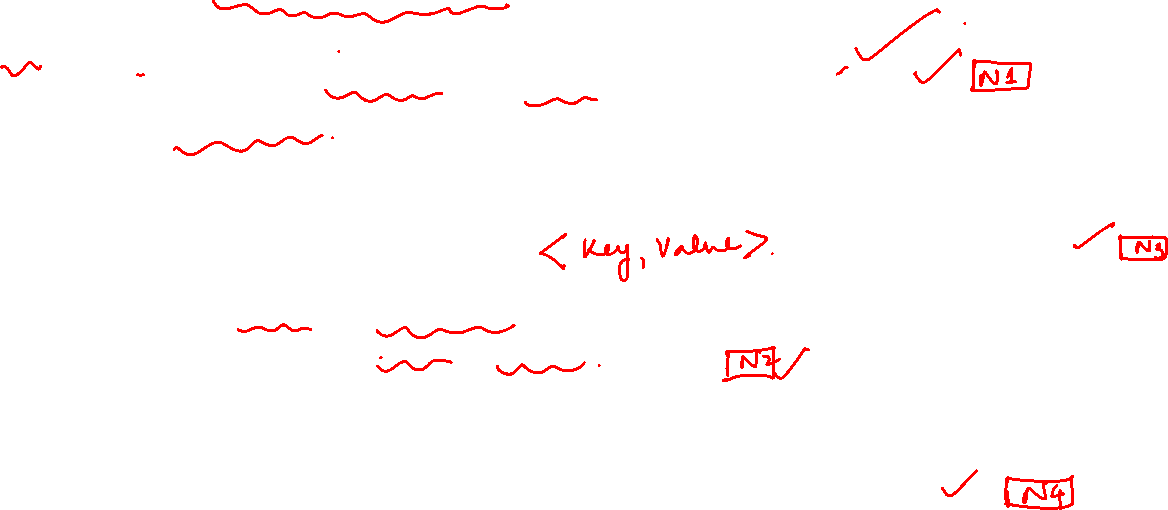 N1
<Key, Value>.
N3
N2
N4